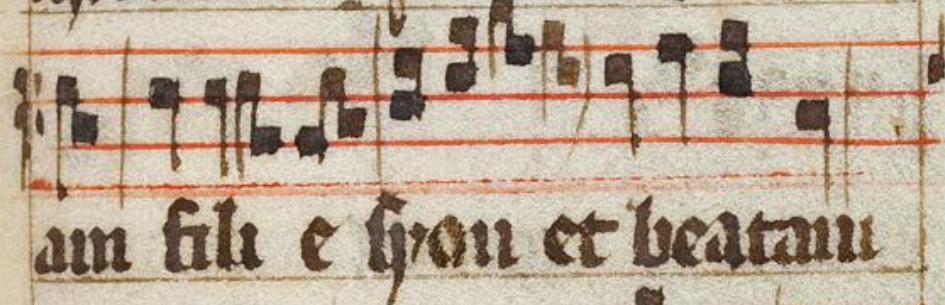 am fili e syon et beatam